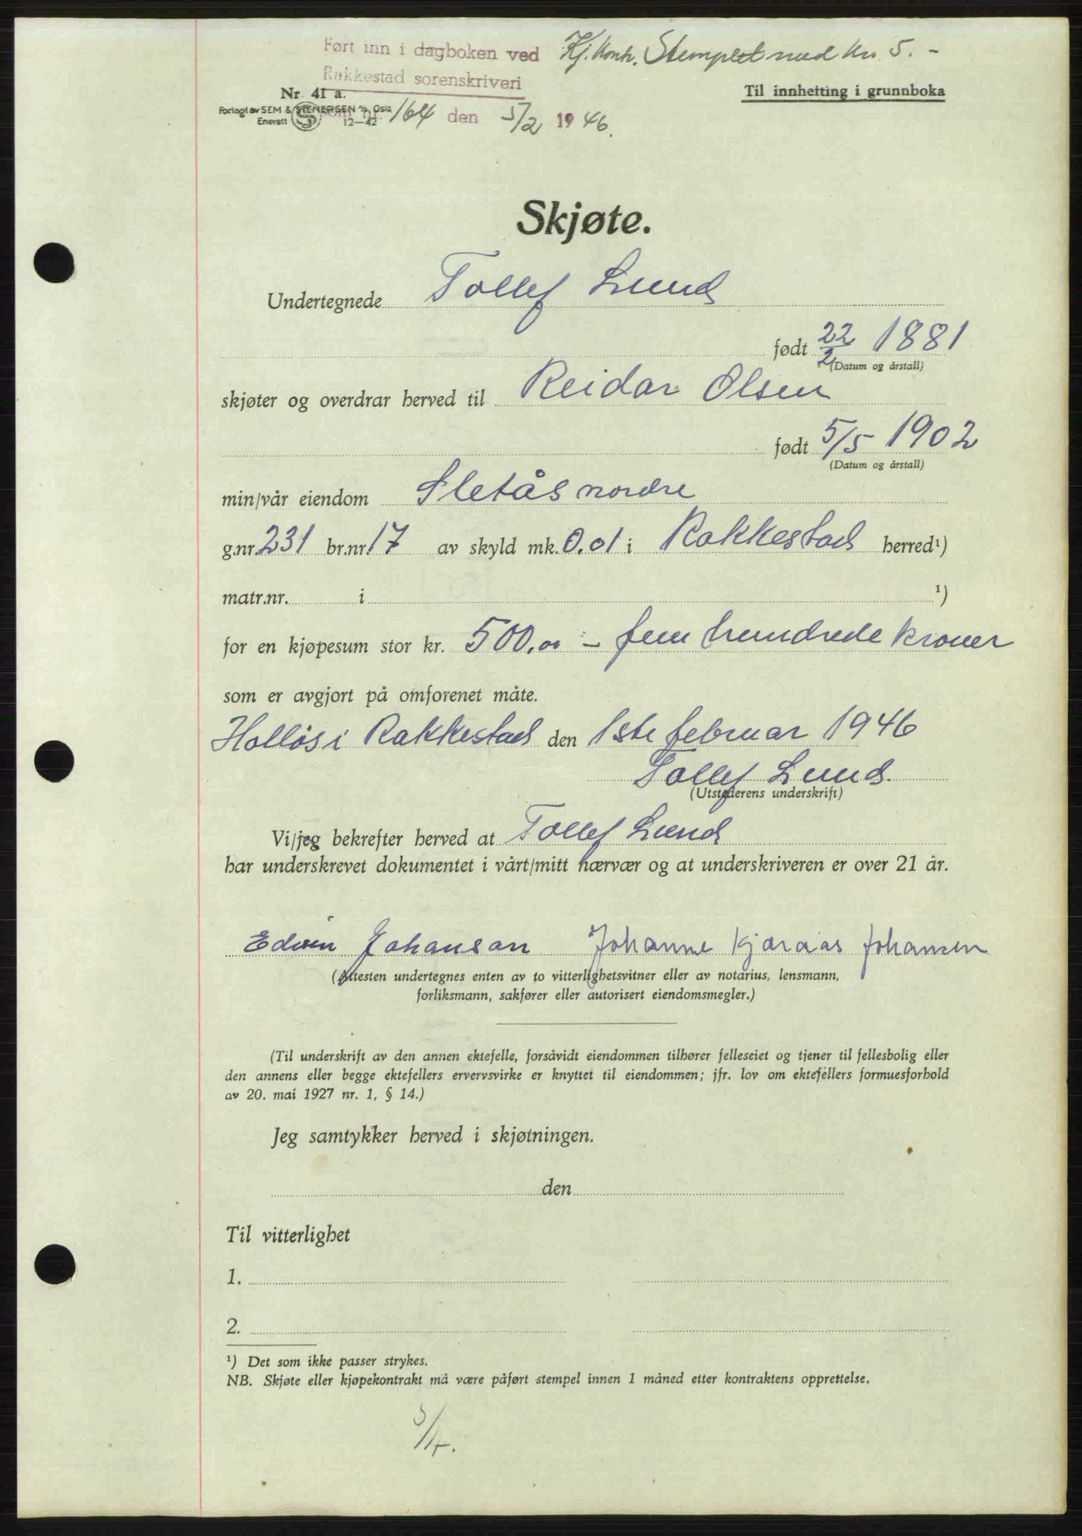 Ført inn i dagboken ved Kj. kontr. Stemplet med kr. 5. -
Rakkestad sorenskriveri
Nr. 41 a.
Til innhefting i grunnboka
Forlagt av SEM & STENERSEN A/S Oslo
Enerett S 12-42
som nr. 164 den 5/2 1946.
Skjøte.
Undertegnede Tollef Lund
født 22/2 1881
(Datum og årstall)
skjøter og overdrar herved til Reidar Olsen
født 5/5 1902
(Datum og årstall)
min/vår eiendom Sletås nordre
g.nr. 231 br.nr. 17 av skyld mk. 0.01 i Rakkestad herred¹)
matr.nr. i ¹)
for en kjøpesum stor kr. 500,00 - fem hundrede kroner
som er avgjort på omforenet måte.
Holløs i Rakkestad den 1ste februar 1946
Tollef Lund.
(Utstederens underskrift)
Vi/jeg bekrefter herved at Tollef Lund
har underskrevet dokumentet i vårt/mitt nærvær og at underskriveren er over 21 år.
Edvin Johansen Johanne Kjæraas Johansen
(Attesten undertegnes enten av to vitterlighetsvitner eller av notarius, lensmann,
forliksmann, sakfører eller autorisert eiendomsmegler.)
(Til underskrift av den annen ektefelle, forsåvidt eiendommen tilhører felleseiet og tjener til fellesbolig eller
den annens eller begge ektefellers ervervsvirke er knyttet til eiendommen; jfr. lov om ektefellers formuesforhold
av 20. mai 1927 nr. 1, § 14.)
Jeg samtykker herved i skjøtningen.
den
Til vitterlighet
1.
2.
¹) Det som ikke passer strykes.
NB. Skjøte eller kjøpekontrakt må være påført stempel innen 1 måned etter kontraktens opprettelse.